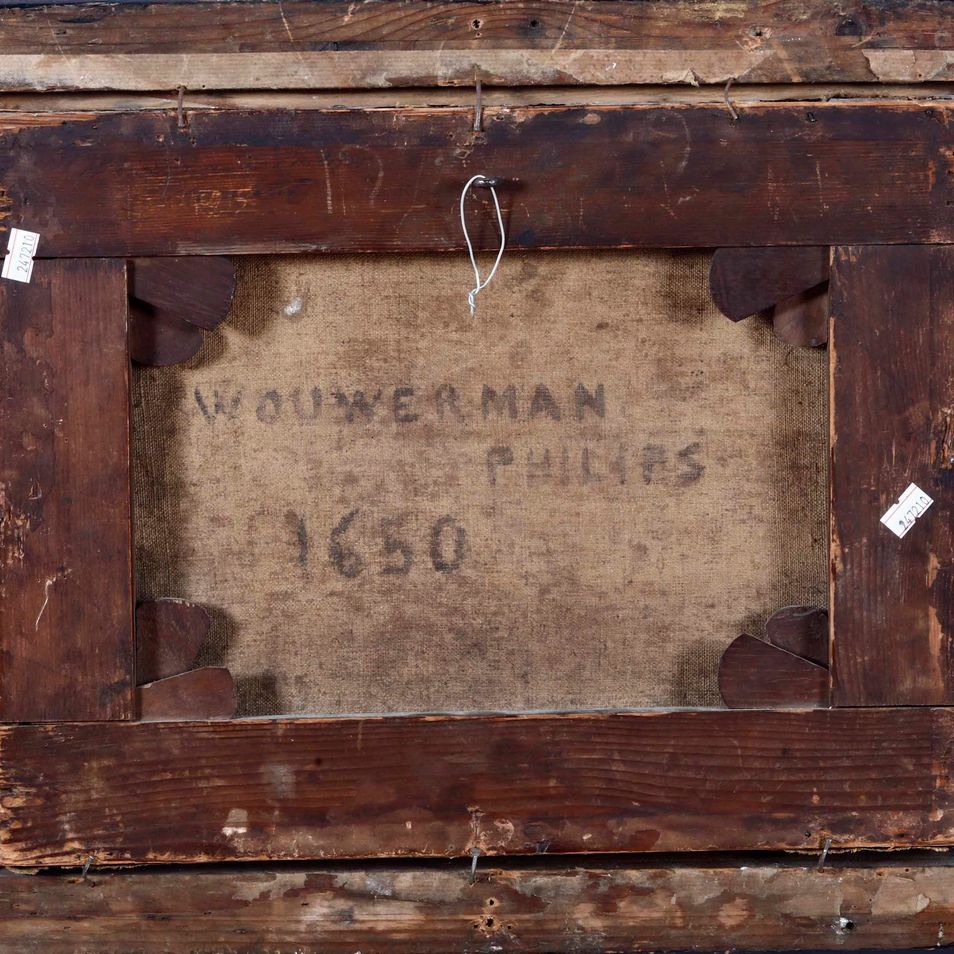 247210
WOUWERMAN
PHILIPS
1650
247210